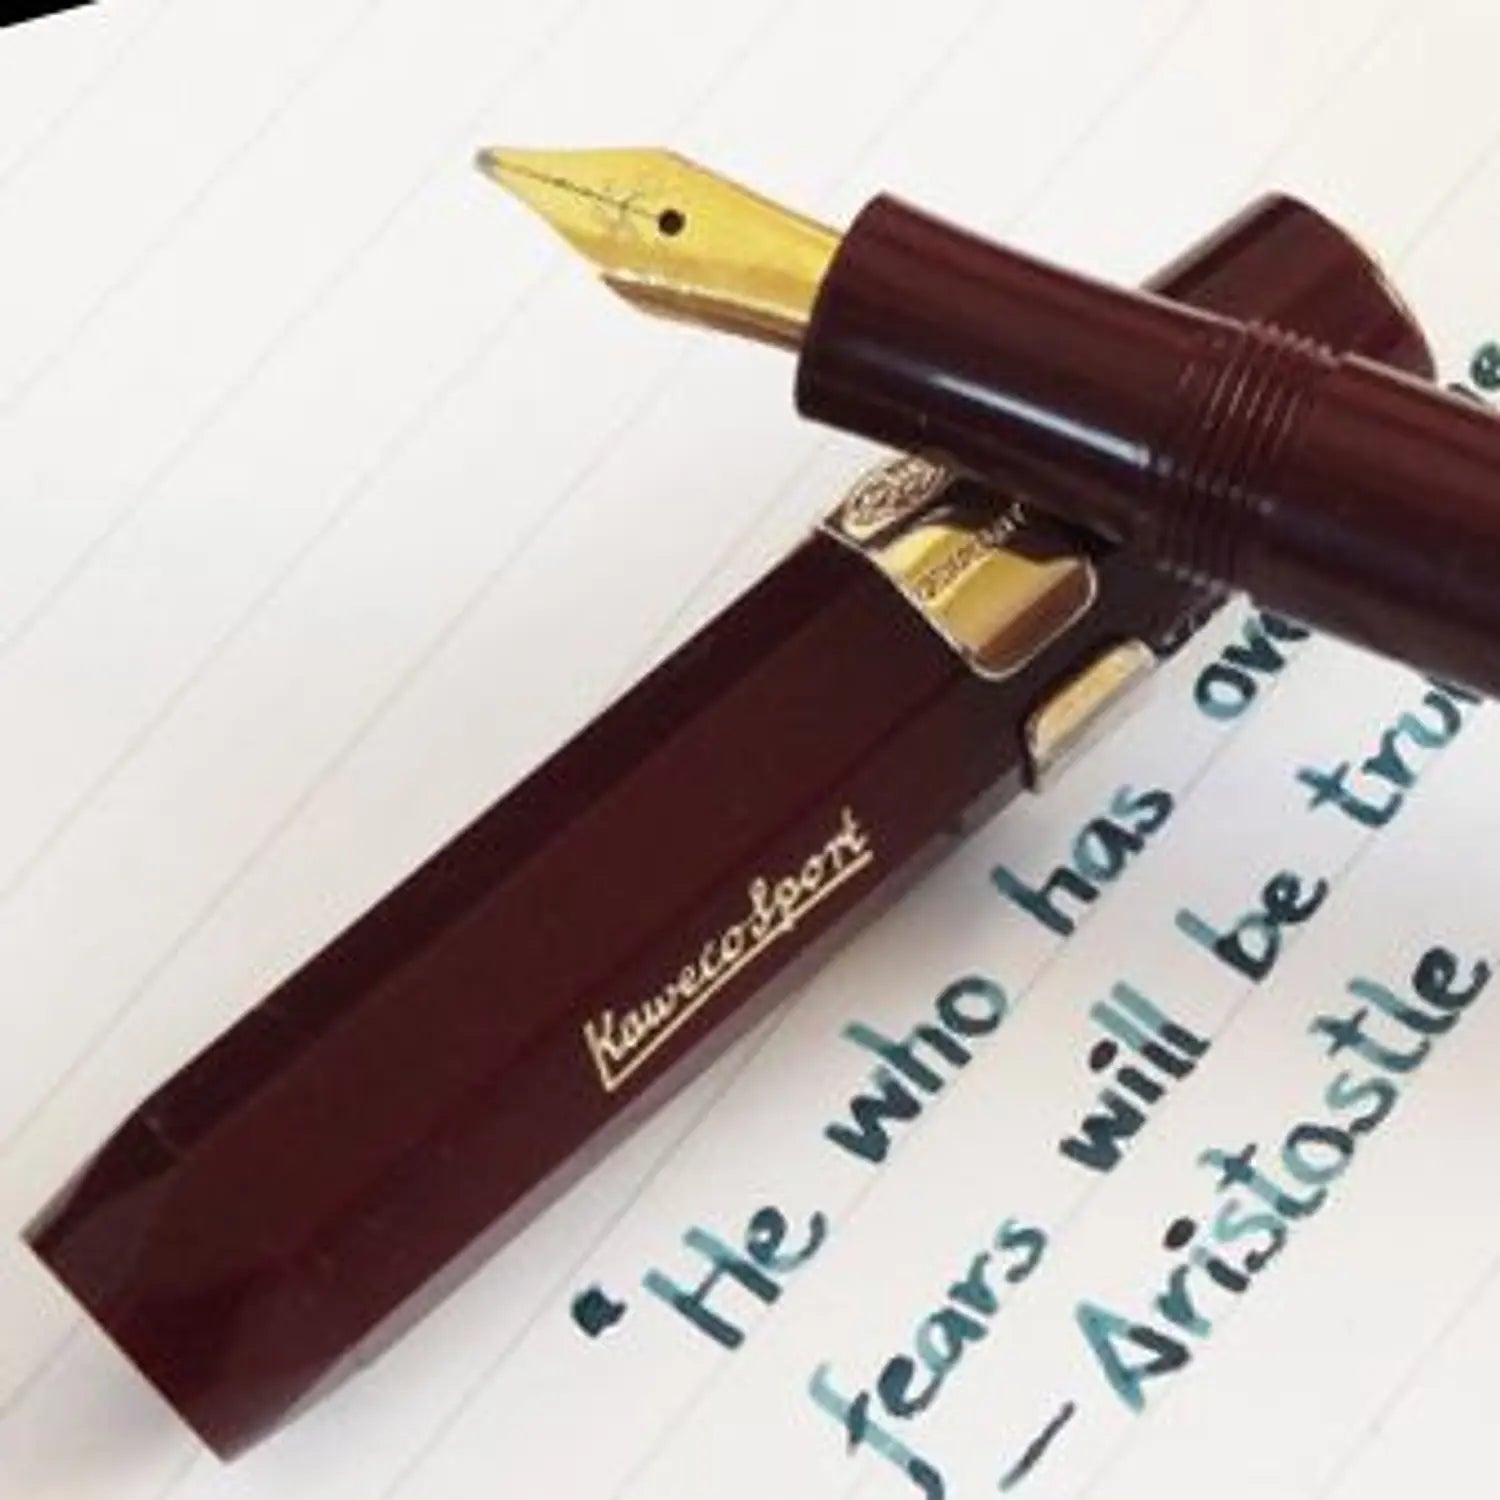 KawecoSport
"He who has
fears will be
- Aristostle